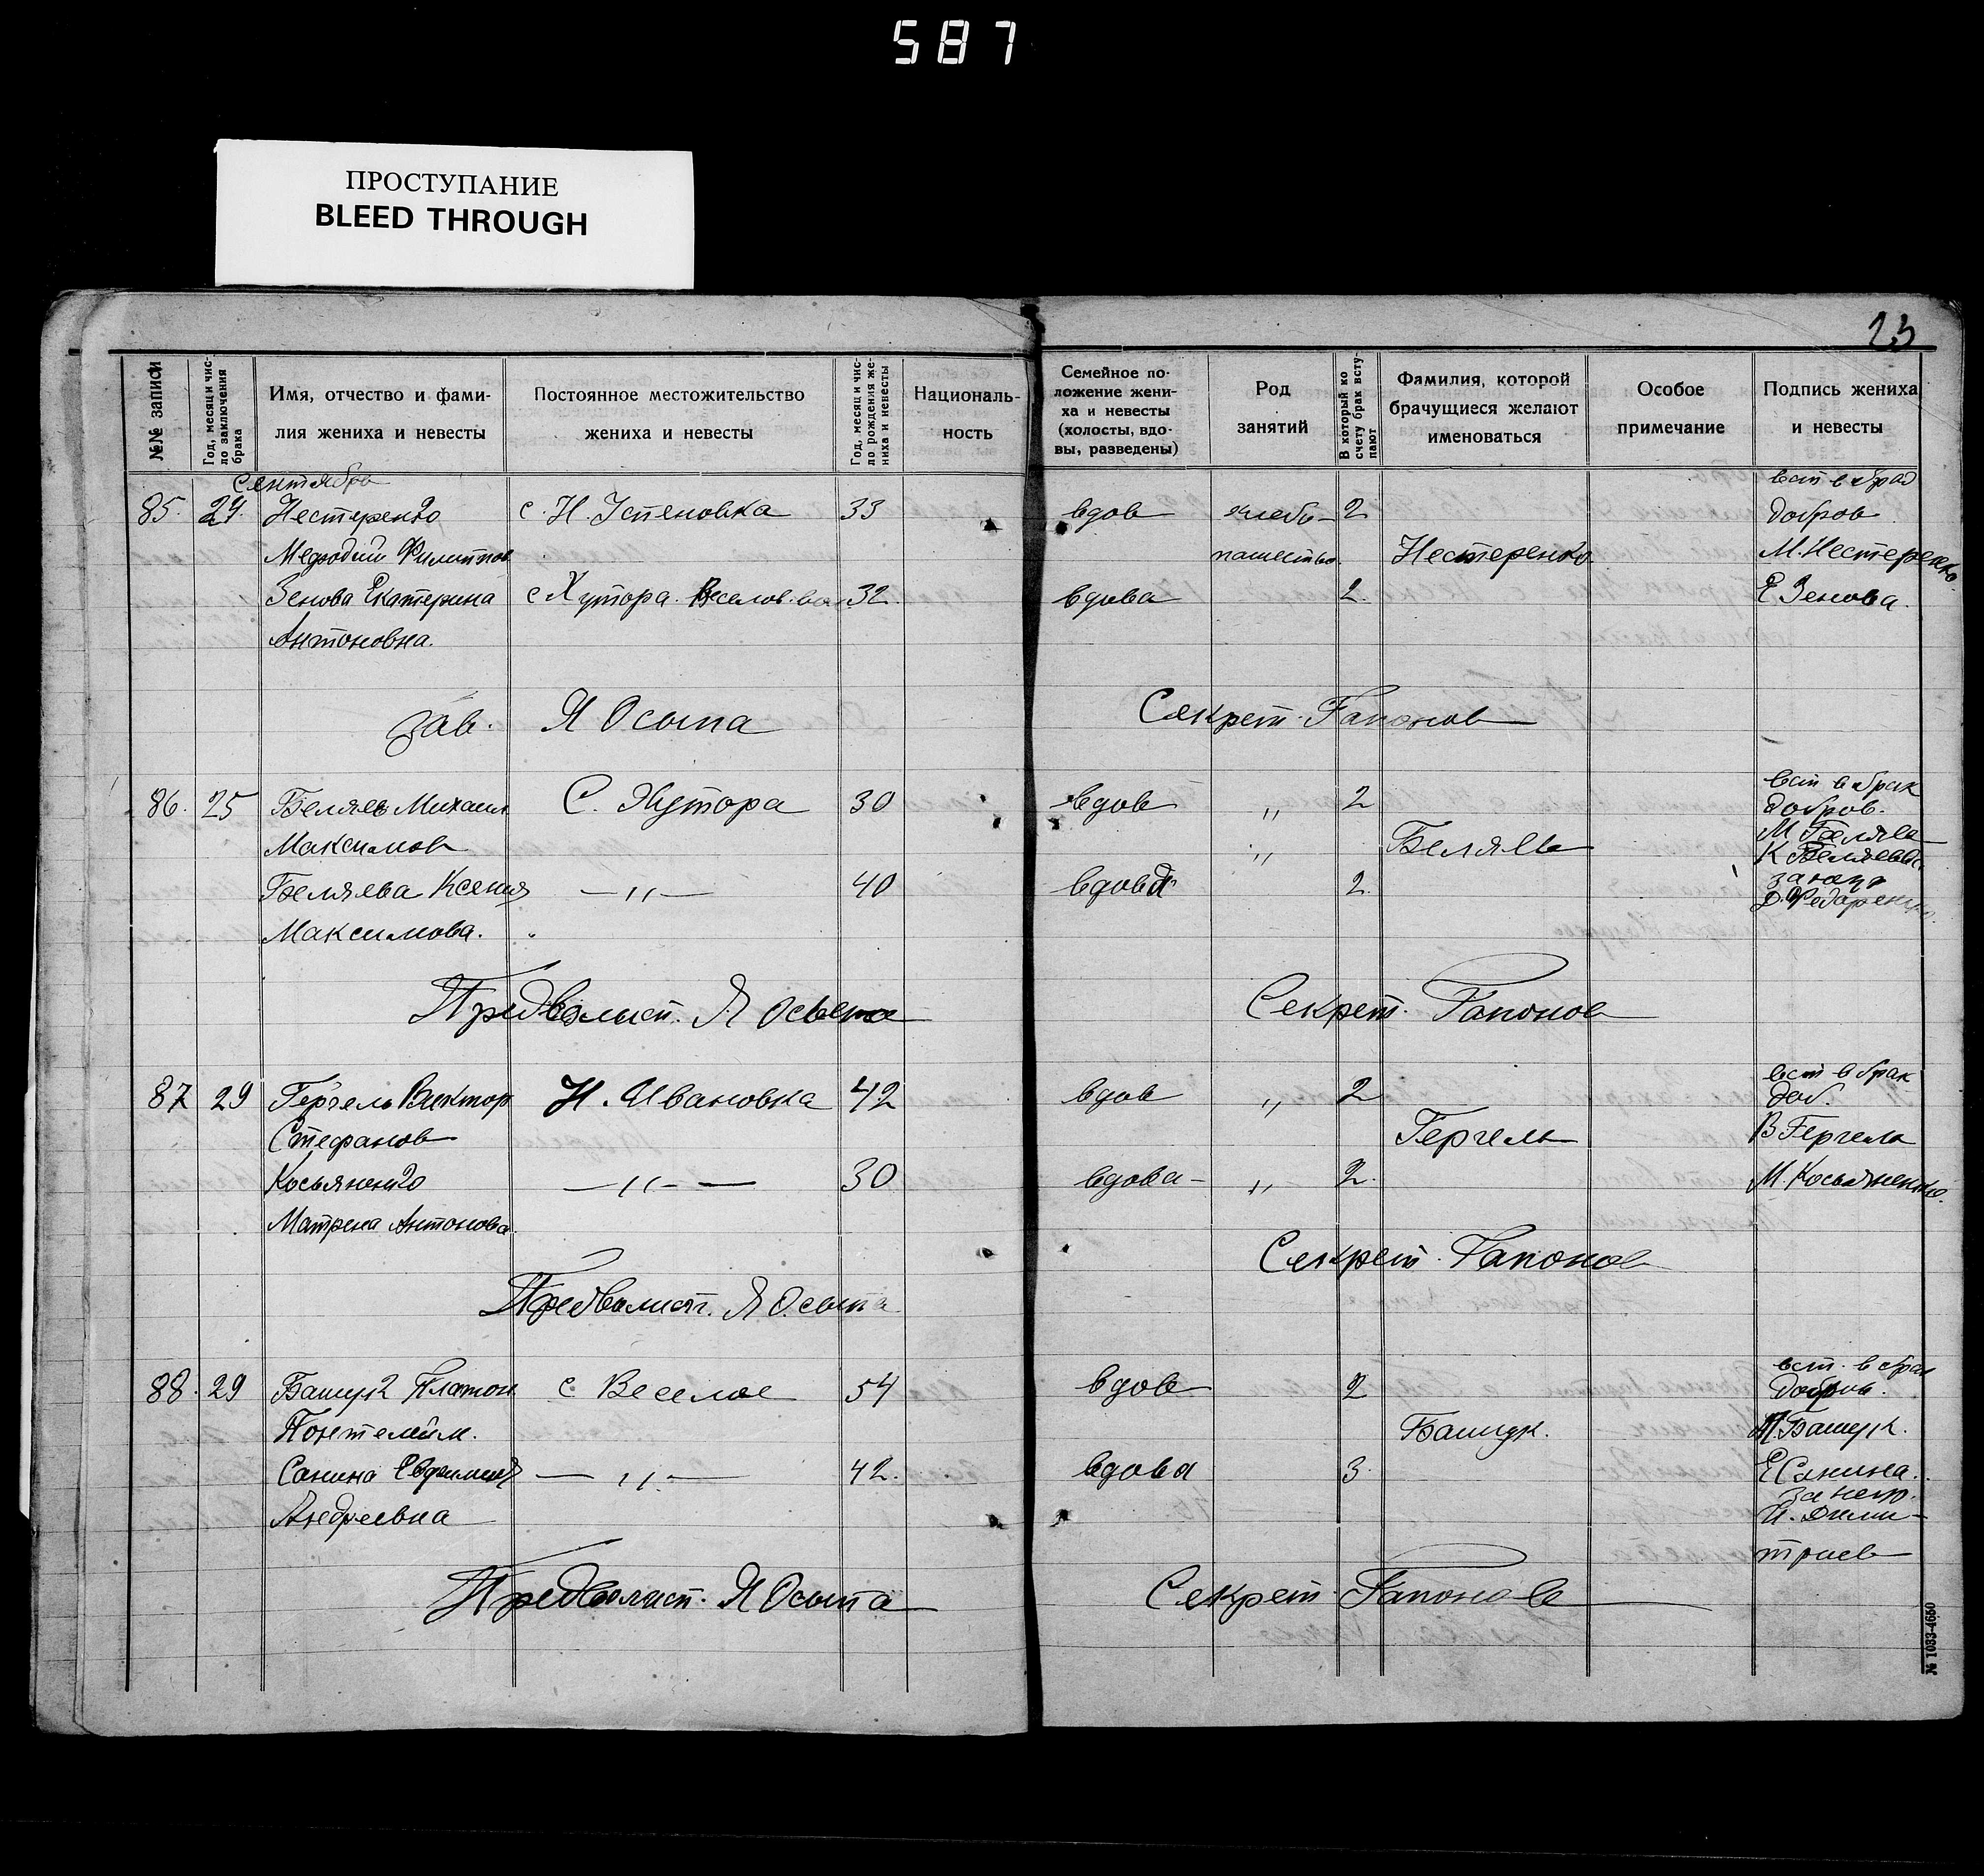 587
ПРОСТУПАНИЕ
BLEED THROUGH
23
№№ записи
Год, месяц и чис-
ло заключения
брака
Имя, отчество и фами-
лия жениха и невесты
Постоянное местожительство
жениха и невесты
Год, месяц и чис-
ло рождения же-
ниха и невесты
Националь-
ность
Семейное по-
ложение жени-
ха и невесты
(холосты, вдо-
вы, разведены)
Род
занятий
В который ко
счету брак всту-
пают
Фамилия, которой
брачущиеся желают
именоваться
Особое
примечание
Подпись жениха
и невесты
Сентября
вст в брак
85. 24. Нестеренко с. Н. Успеновка 33 вдов хлебо- 2 добров
Мефодий Филиппов пашество. Нестеренко М. Нестеренко
Зенова Екатерина с Хутора 32 вдова 2. Е Зенова.
Антоновна.
Зав. Я Осыпа Секрет. Гапонов
вст в брак
86. 25 Беляев Михаил С. Хутора 30 вдов „ 2 добров.
Максимов „ Беляев М Беляев
К Беляева
Беляева Ксения — „ — 40 вдова 2. за
Д. Федоренко
Максимова.
Предволисп. Я Осыпа Секрет. Гапонов
вст в брак
87 29 Гергель Виктор Н. Ивановка 42 вдов „ 2 доб.
Стефанов Гергель В Гергель
Косьяненко — „ — — 30 вдова - „ 2. М. Косьяненко.
Матрена Антонова.
Секрет. Гапонов
Предволисп. Я Осыпа
вст. в брак
88. 29 Башук Платон с Веселое 54 вдов 2 добров.
Понтелейм. Башук. П. Башук.
Санина Евфимия — „ — 42. вдова 3. Е Санина.
за негр.
Андреевна И. Дими-
триев
Предволисп. Я Осыпа Секрет. Гапонов
№ 1033-4660